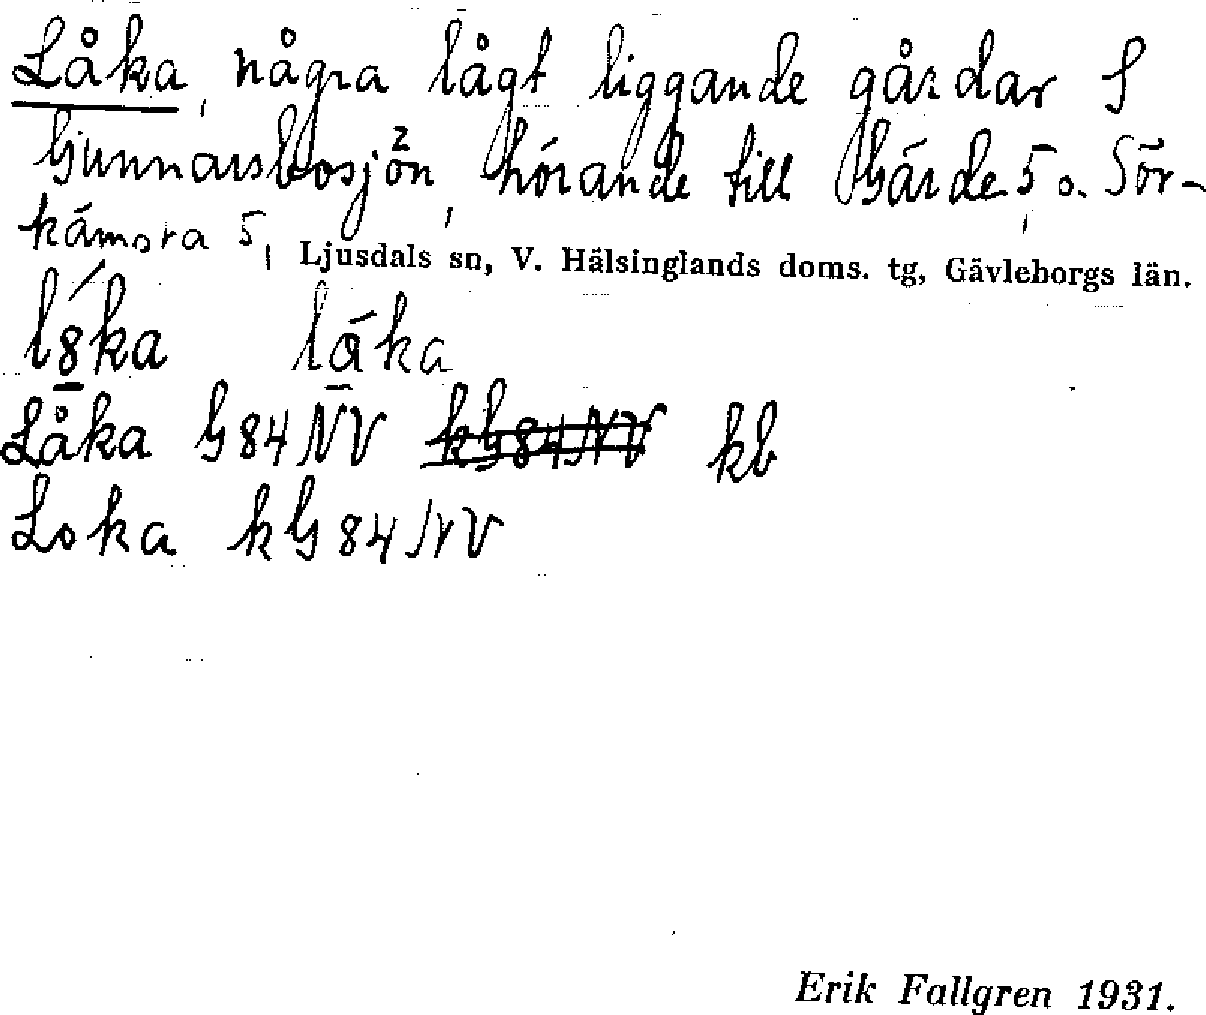 Låka, några lågt liggande gårdar S
Gunnarsbosjön², hörande till Gärde 5, o. Sör-
kämsta 5, Ljusdals sn, V. Hälsinglands doms. tg, Gävleborgs län.
låka
Låka G84NV kG84NV kb
Loka kG84NV
Erik Fallgren 1931.